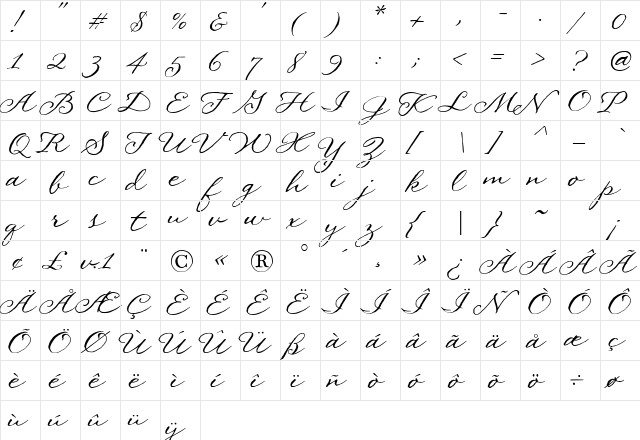 ! " # $ % & ' ( ) * + , - . / 0
1 2 3 4 5 6 7 8 9 : ; < = > ? @
A B C D E F G H I J K L M N O P
Q R S T U V W X Y Z [ \ ] ^ _ `
a b c d e f g h i j k l m n o p
q r s t u v w x y z { | } ~ ¡
¢ £ v.1 ¨ © « ® ° ´ ¸ » ¿ À Á Â Ã
Ä Å Æ Ç È É Ê Ë Ì Í Î Ï Ñ Ò Ó Ô
Õ Ö Ø Ù Ú Û Ü ß à á â ã ä å æ ç
è é ê ë ì í î ï ñ ò ó ô õ ö ÷ ø
ù ú û ü ÿ